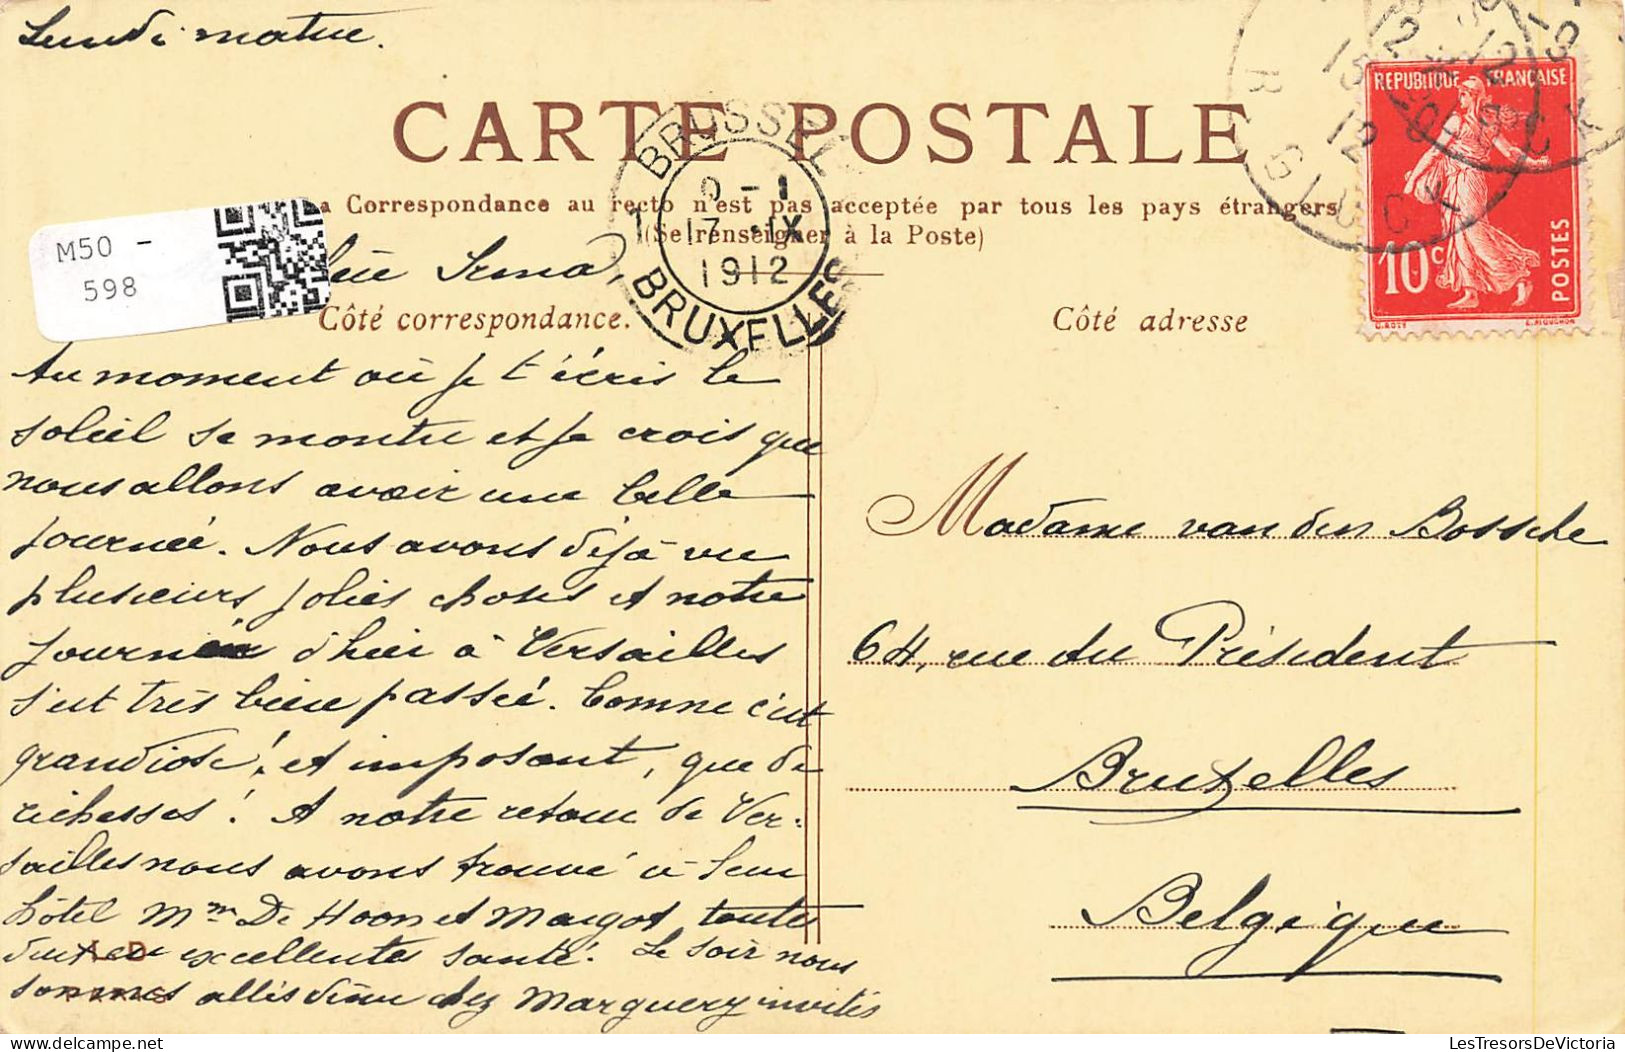 Lundi matin.
CARTE POSTALE
a Correspondance au recto n'est pas acceptée par tous les pays étrangers
(Se renseigner à la Poste)
M50 -
598
Irma,
Côté correspondance.
Côté adresse
BRUSSEL
1 17 -IX
1912
BRUXELLES
REPUBLIQUE FRANÇAISE
10c POSTES
O. ROTY
Au moment où je t'écris le
soleil se montre et je crois que
nous allons avoir une belle
journée. Nous avons déjà vu
plusieurs jolies choses et notre
journée d'hier à Versailles
s'est très bien passée. Comme c'est
grandiose! et imposant, que de
richesses! A notre retour de Ver-
sailles nous avons trouvé à leur
hôtel Mme De Hoon et Margot, toutes
deux en excellente santé. Le soir nous
sommes allés dîner chez Marguery invités
Madame van den Bossche
64, rue du Président
Bruxelles
Belgique
LesTresorsDeVictoria